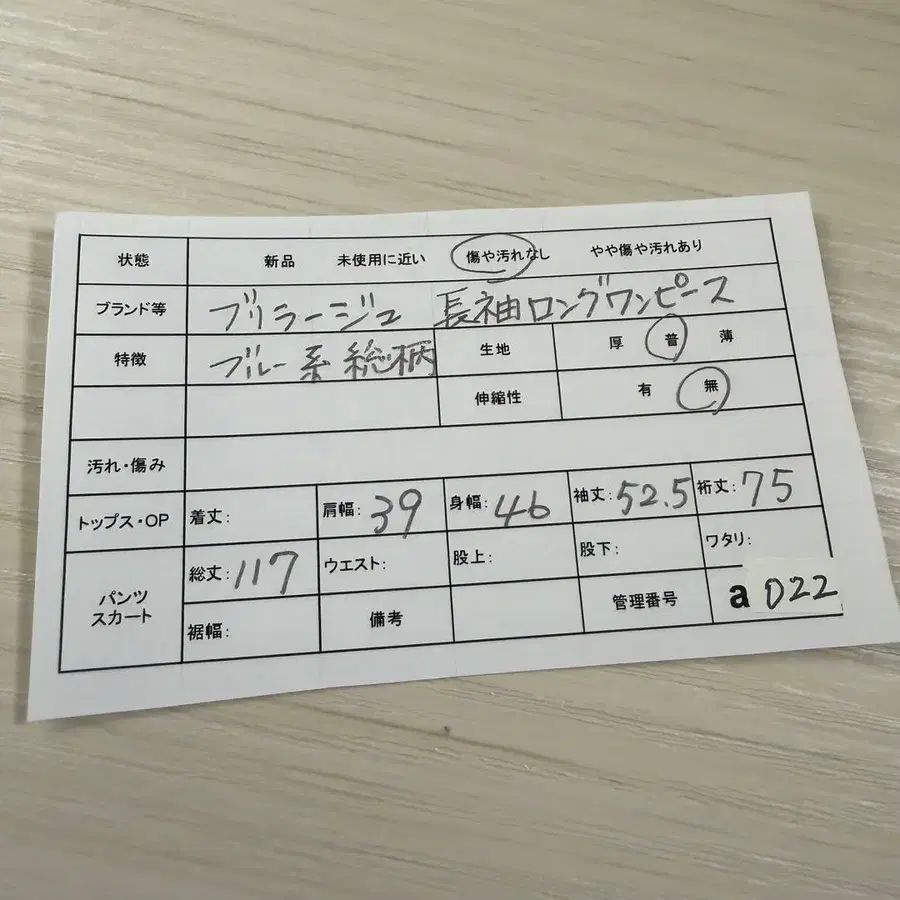 状態 新品 未使用に近い 傷や汚れなし やや傷や汚れあり
ブランド等 ブリラージュ 長袖ロングワンピース
特徴 ブルー系総柄 生地 厚 普 薄
伸縮性 有 無
汚れ・傷み
トップス・OP 着丈: 肩幅:39 身幅:46 袖丈:52.5 裄丈:75
パンツ スカート 総丈:117 ウエスト: 股上: 股下: ワタリ:
裾幅: 備考 管理番号 a 022